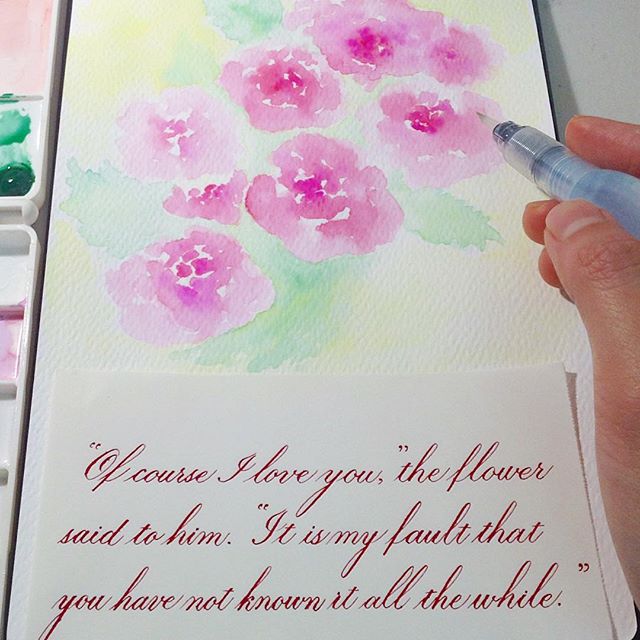 "Of course I love you," the flower
said to him. "It is my fault that
you have not known it all the while."